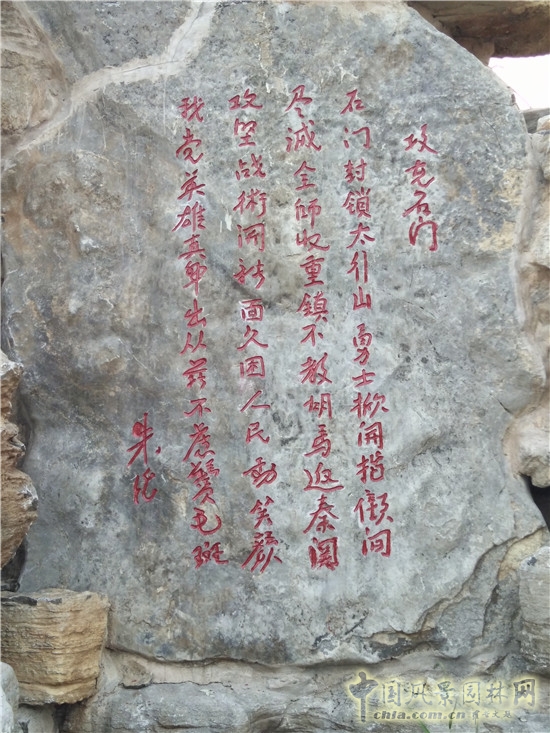 攻克石门
石门封鎖太行山 勇士掀開指顧间
尽滅全師收重鎮不教胡馬返秦関
攻坚战術開新面久困人民動笑颜
我党英雄真輩出从兹不慮鬓毛斑
朱德
中国风景园林网
chla.com.cn